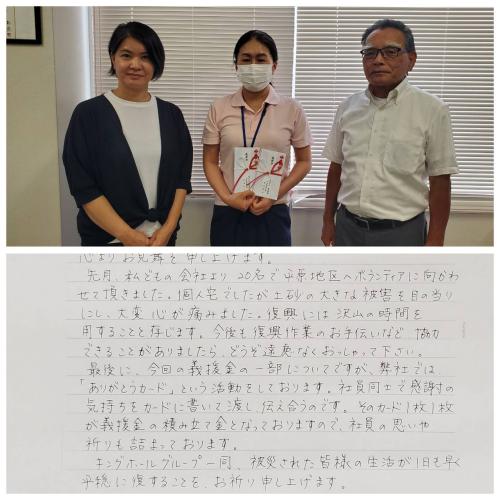 心よりお見舞を申し上げます。
先月、私どもの会社より20名で平原地区へボランティアに向かわ
せて頂きました。個人宅でしたが土砂の大きな被害を目の当り
にし、大変心が痛みました。復興には沢山の時間を
用することと存じます。今後も復興作業のお手伝いなど、協力
できることがありましたら、どうぞ遠慮なくおっしゃって下さい。
最後に、今回の義援金の一部についてですが、弊社では
「ありがとうカード」という活動をしております。社員同士で感謝の
気持ちをカードに書いて渡し、伝え合うのです。そのカード1枚1枚
が義援金の積み立て金となっておりますので、社員の思いや
祈りも詰まっております。
キングホールグループ一同、被災された皆様の生活が1日も早く
平穏に復することを、お祈り申し上げます。